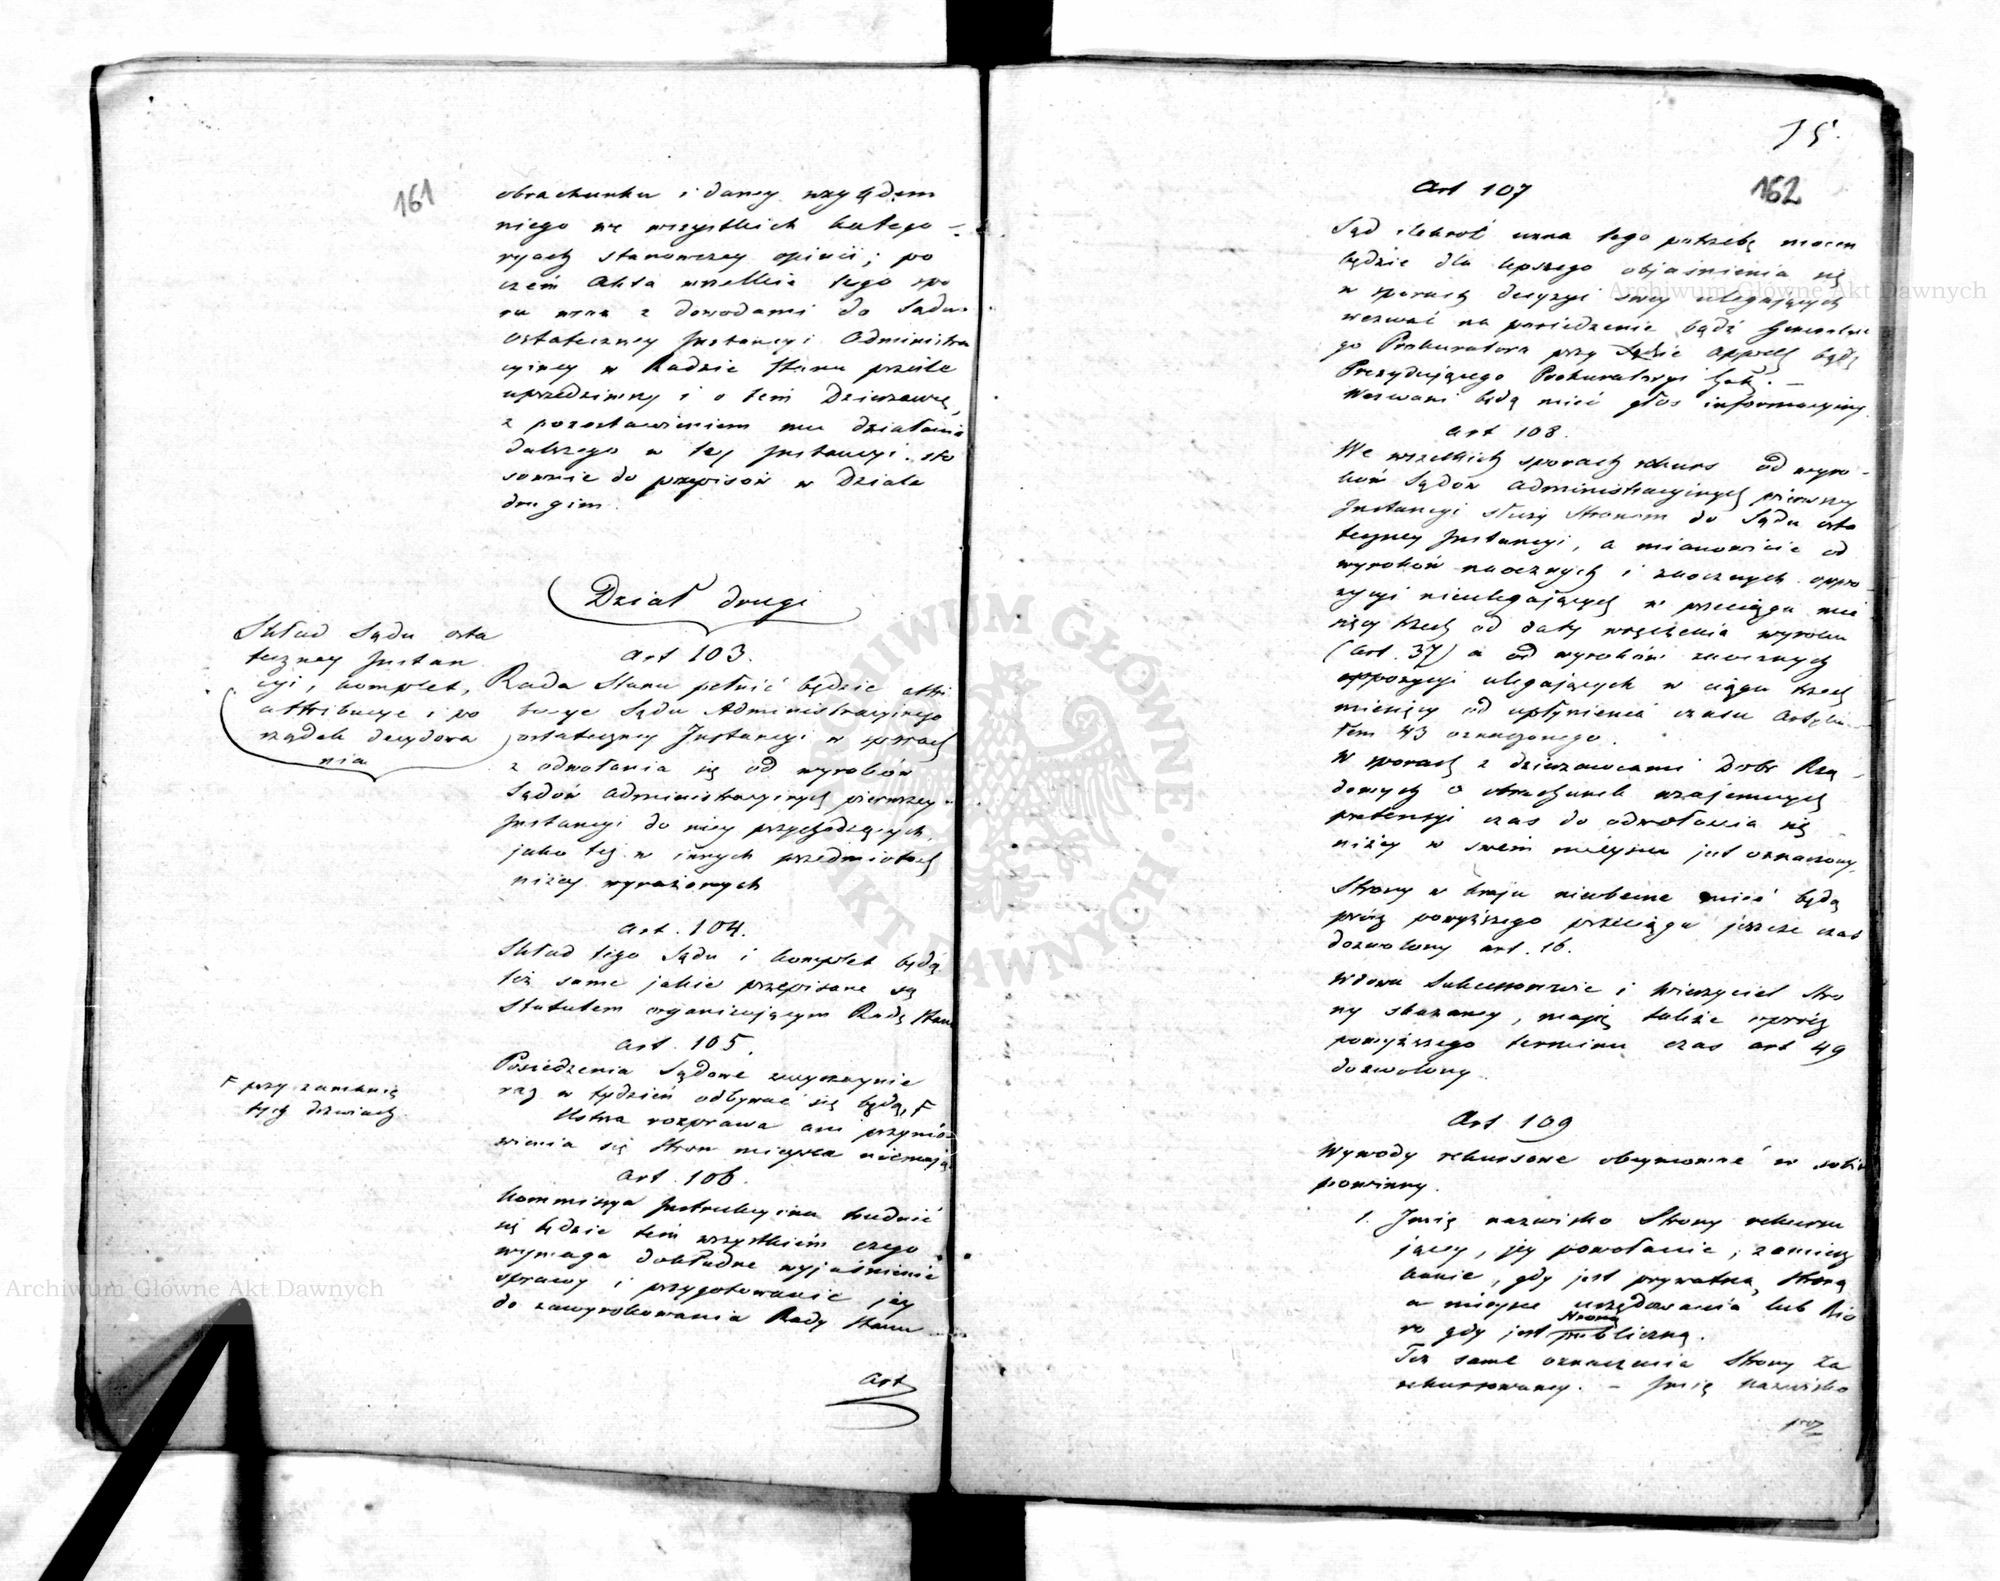 161
obrachunku i daney względem
niego we wszystkich katego-
ryach stanowczey opinii; po
czem Akta wszelkie tego spo
ru wraz z dowodami do Sądu
ostateczney Instancyi Administra
cyiney w Radzie Stanu prześle
uprzedziwszy i o tem Dzierżawcę,
z pozostawieniem mu działania
dalszego w tey Instancyi sto
sownie do przepisów w Dziale
drugim.
Dział drugi
Skład Sądu osta
teczney Instan
cyi, komplet,
attribucye i po
rządek decydowa
nia
Art 103.
Rada Stanu pełnić będzie attri
bucye Sądu Administracyinego
ostateczney Instancyi w sporach
z odwołania się od wyroków
Sądów Administracyinych pierwszey
Instancyi do niey przychodzących,
jako też w innych przedmiotach
niżey wyrażonych
Art. 104.
Skład tego Sądu i komplet będą
też same jakie przepisane są
Statutem organizującym Radę Stanu
Art. 105.
Posiedzenia Sądowe zwyczaynie
raz w tydzień odbywać się będą, F
F przy zamknię
tych drzwiach.
Ustna rozprawa ani przymó
wienia się Stron mieysca niemają
Art. 106.
Kommissya Instrukcyina trudnić
się będzie tem wszystkiem czego
wymaga dokładne wyjaśnienie
sprawy i przygotowanie jey
do zawyrokowania Rady Stanu
Art
75.
162
Art 107
Sąd ilekroć uzna tego potrzebę mocen
będzie dla lepszego objaśnienia się
w sporach decyzyi swey ulegających
wezwać na posiedzenie bądź Generalne
go Prokuratora przy Sądzie appell bądź
Prezydującego Prokuratoryi
Wezwani będą mieć głos informacyiny
Art 108.
We wszelkich sporach rekurs od wyro-
ków Sądów Administracyinych pierwszey
Instancyi służy Stronom do Sądu osta
teczney Instancyi, a mianowicie od
wyroków naocznych i zaocznych oppo
zycyi nieulegających w przeciągu mie
sięcy trzech od daty wręczenia wyroku
(art. 37) a od wyroków zaocznych
oppozycyi ulegających w ciągu trzech
miesięcy od upłynienia czasu Artyku-
łem 43 oznaczonego.
W sporach z dzierżawcami Dóbr Rzą-
dowych o obrachunek wzajemnych
pretensyi czas do odwołania się
niżey w swem mieyscu jest oznaczony.
Strony w kraju nieobecne mieć będą
prócz powyższego przeciągu jeszcze czas
dozwolony art. 16.
Wdowa Sukcessorowie i wierzyciel Stro
ny skazaney, mają także oprócz
powyższego terminu czas art 49
dozwolony.
Art 109
Wywody rekursowe obeymować w sobie
powinny.
1. Jmię nazwisko Strony rekursu
jącey, jey powołanie, zamiesz
kanie, gdy jest prywatną Stroną
a mieysce urzędowania lub Bió
ro gdy jest Stroną publiczną.
Też same oznaczenia Strony za
rekursowaney. - Jmię nazwisko